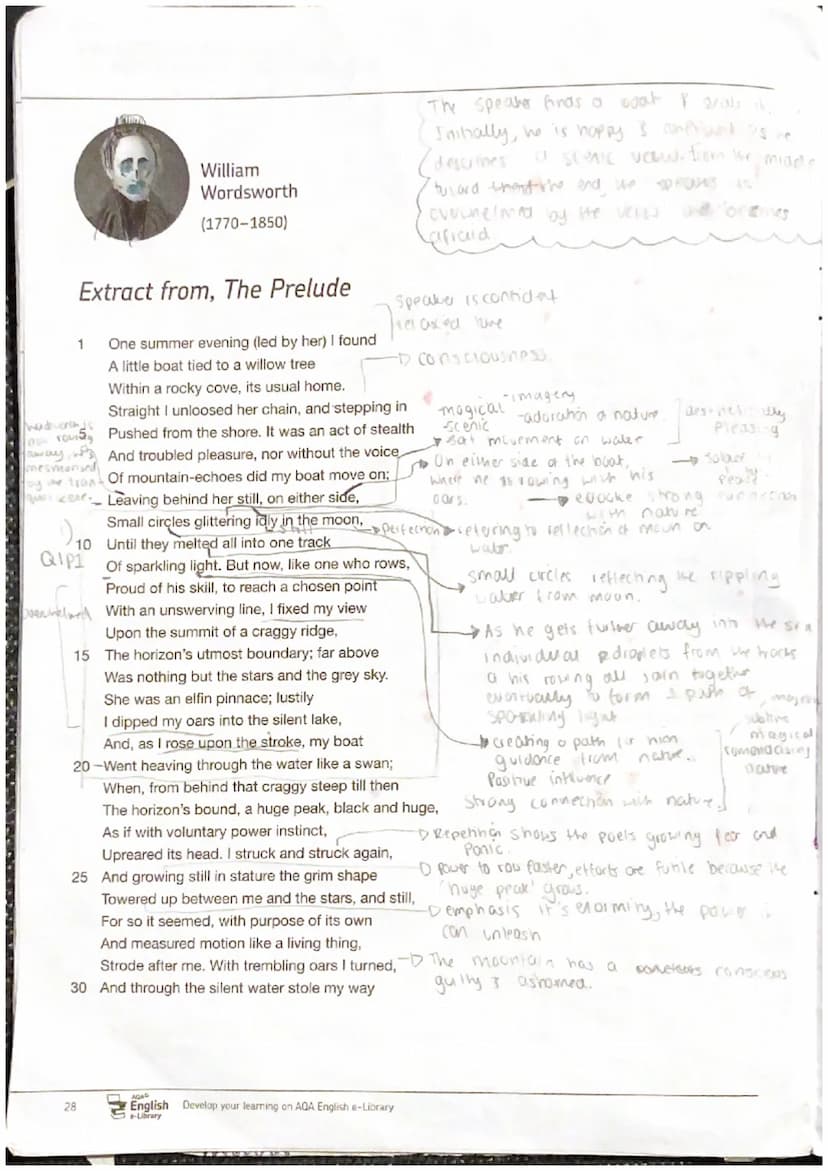 The speaker finds a boat & 
Initially, he is happy & confident as he
describes a scenic view. from the middle
toward the end, the speaker is
overwhelmed by the view and becomes
afraid.
William
Wordsworth
(1770–1850)
Extract from, The Prelude
Speaker is confident
relaxed tone
1 One summer evening (led by her) I found
A little boat tied to a willow tree
→ consciousness.
Within a rocky cove, its usual home.
Straight I unloosed her chain, and stepping in
5 Pushed from the shore. It was an act of stealth
And troubled pleasure, nor without the voice
Of mountain-echoes did my boat move on;
Leaving behind her still, on either side,
Small circles glittering idly in the moon,
10 Until they melted all into one track
Of sparkling light. But now, like one who rows,
Proud of his skill, to reach a chosen point
With an unswerving line, I fixed my view
Upon the summit of a craggy ridge,
15 The horizon's utmost boundary; far above
Was nothing but the stars and the grey sky.
She was an elfin pinnace; lustily
I dipped my oars into the silent lake,
And, as I rose upon the stroke, my boat
20 Went heaving through the water like a swan;
When, from behind that craggy steep till then
The horizon's bound, a huge peak, black and huge,
As if with voluntary power instinct,
Upreared its head. I struck and struck again,
25 And growing still in stature the grim shape
Towered up between me and the stars, and still,
For so it seemed, with purpose of its own
And measured motion like a living thing,
Strode after me. With trembling oars I turned,
30 And through the silent water stole my way
Q1P1
overwhelmed
-imagery
magical -adoration of nature.
-scenic
movement on water
aesthetically
pleasing
On either side of the boat,
where he is rowing with his
oars.
→ solace
peace
→ evoke strong connection
with nature
→ perfection → referring to reflection of moon on
water.
small circles reflecting the rippling
water from moon.
As he gets further away into the sea
individual droplets from the tracks
of his rowing all join together
eventually to form a path of
sparkling light
creating a path for him
guidance from nature.
Positive influence
Strong connection with nature.
sublime
magical
romanticising
nature
Repetition shows the poets growing fear and
panic.
Power to row faster, efforts are futile because the
'huge peak' grows.
emphasis it's enormity, the power
can unleash
The mountain has a conscious
guilty & ashamed.
28
AQA
English
e-Library
Develop your learning on AQA English e-Library